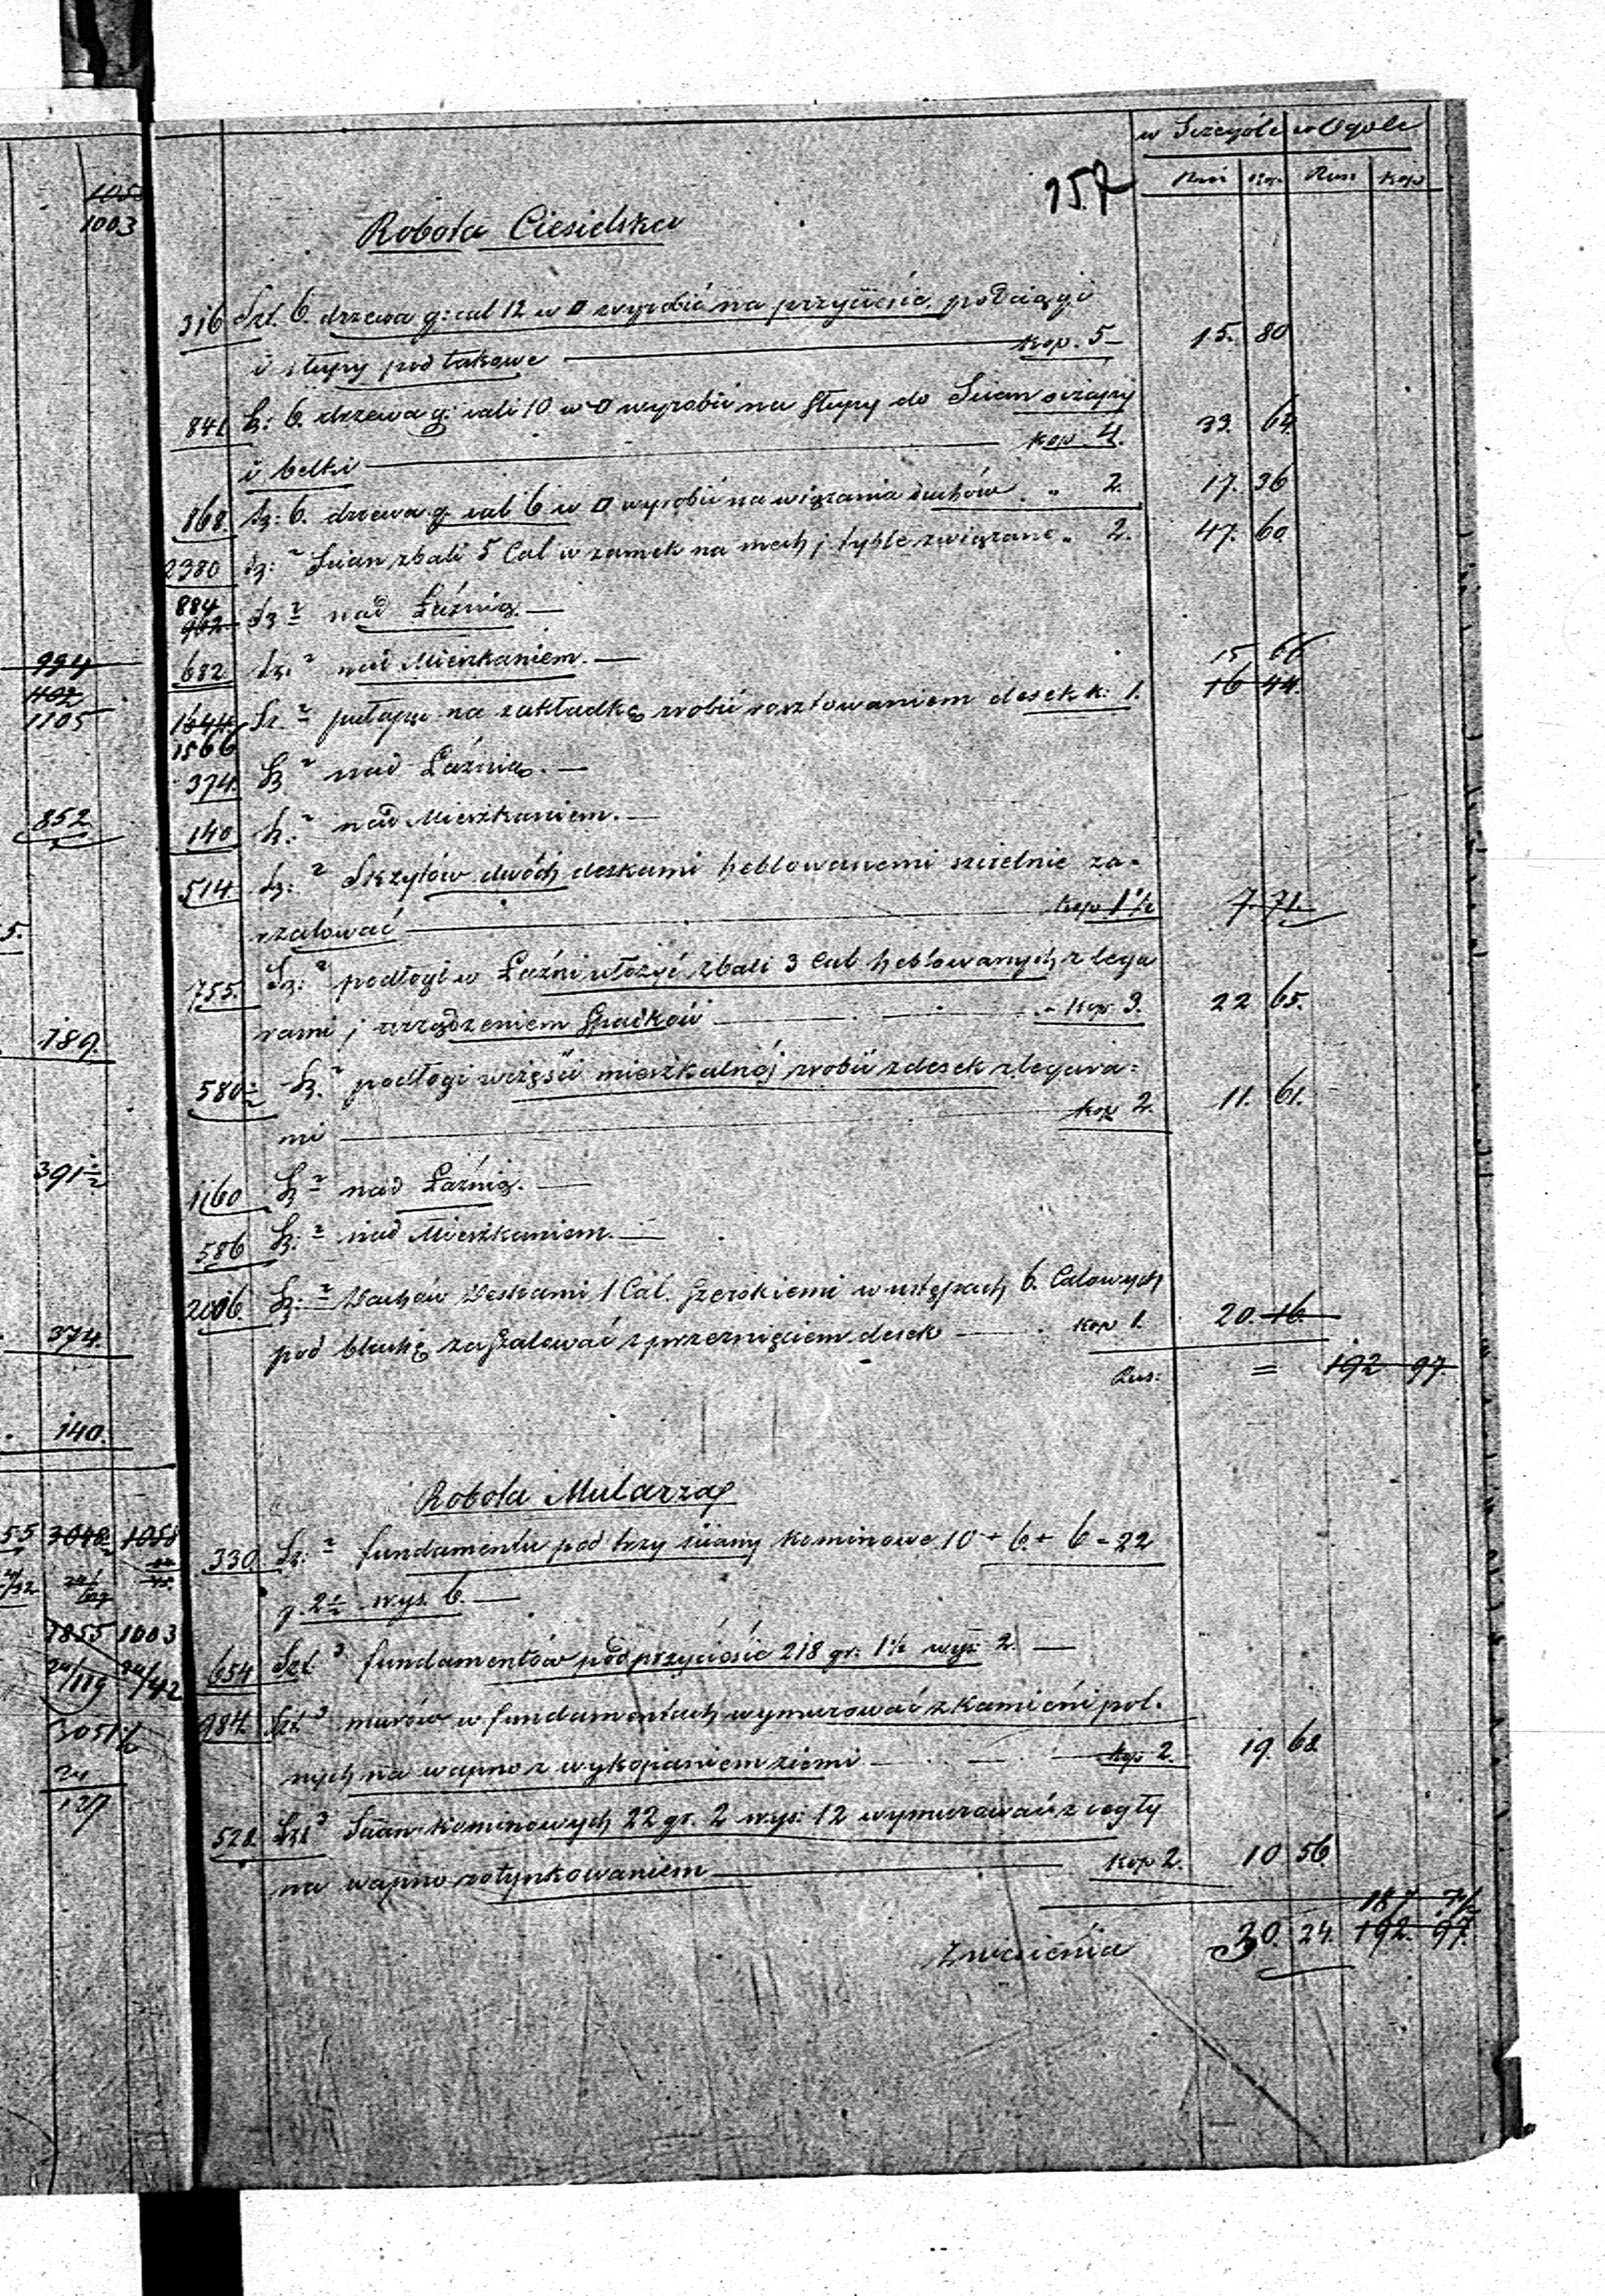 w Szczególe w Ogole
Rus Kop. Rus Kop
157
Robota Ciesielska
316 Szt. b. drzewa g: cal 12 w □ wyrobić na przyciesie, podciągi
i słupy pod takowe — kop. 5 — 15. 80
841 Sz: b. drzewa g: cali 10 w □ wyrobić na słupy do Scian oczapy
i belki — kop. 4. 33. 64.
868 Sz: b. drzewa g. cali 6 w □ wyrobić na wiązania dachów „ 2. 17. 36
2380 Sz: ² Scian z bali 5 Cal w zamek na mech i tyble związane „ 2. 47. 60
884
902 Sz ² nad Łaźnią. —
682 Sz. ² nad Mieszkaniem. —
15 66
1644 Sz. ² pułapu na zakładkę zrobić rosztowaniem desek k: 1. 16 44.
1566
374. Sz ² nad Łaźnią. —
140 Sz. ² nad Mieszkaniem. —
514. Sz: ² Szczytów dwóch deskami heblowanemi szczelnie za-
szalować — kop 1½ 7. 71.
755. Sz: ² podłogi w Łaźni ułożyć z bali 3 Cal heblowanych z lega
rami i urządzeniem Spadków — kop 3. 22 65.
580½ Sz. ² podłogi w części mieszkalnéj zrobić z desek z legara=
mi — kop 2. 11. 61.
1160 Sz ² nad Łaźnią. —
586 Sz: ² nad Mieszkaniem. —
2006. Sz: ² Dachów Deskami 1 Cal. Szerokiemi w ustępach 6. Calowych
pod blachę zaszalować z przerznięciem desek — kop 1. 20. 16.
Rus: = 192 97.
Robota Mularza
330. Sz: ² fundamentu pod trzy ściany kominowe 10 + 6 + 6 = 22
g. 2½ wys. 6. —
654 Szt ³ fundamentów pod przyciesie 218 gr: 1½ wys: 2. —
984. Szt ³ murów w fundamentach wymurować z kamieni pol.
nych na wapno z wykopaniem ziemi — kop 2. 19. 68
528 Szt ³ Scian kominowych 22 gr. 2 wys: 12 wymurować z cegły
na wapno z otynkowaniem — kop 2. 10 56.
187 71
Zniesienia 30. 24. 192. 97.
1058
1003
994
402
1105
852
5.
189.
391½
374.
140.
55 3048½ 1058
1855 1003
24/119 24/42
3051½
24
127